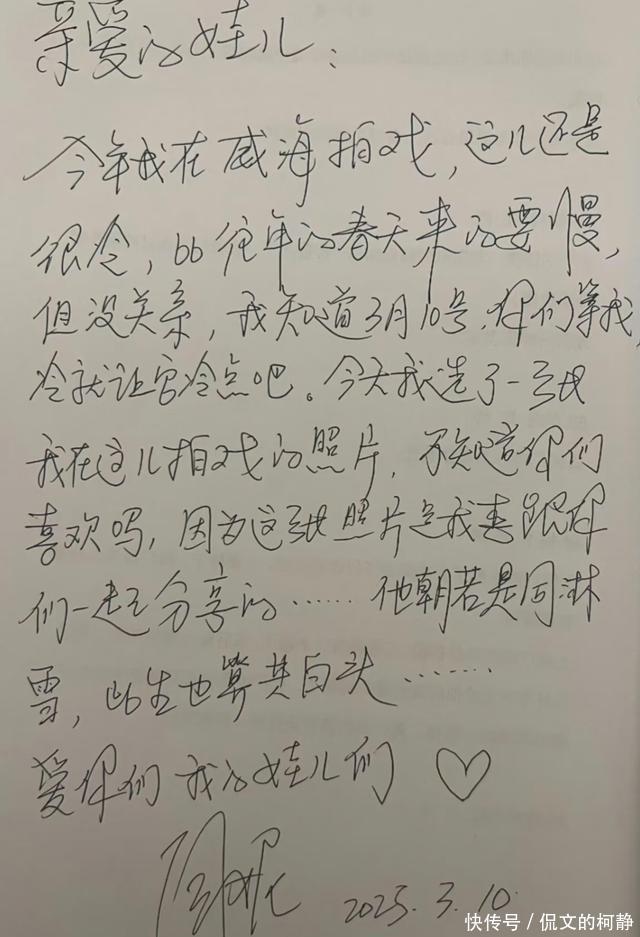 亲爱的娃儿：
今年我在威海拍戏，这儿还是
很冷，比往年的春天来的要慢，
但没关系，我知道3月10号，你们等我，
冷就让它冷点吧。今天我选了一张
我在这儿拍戏的照片，不知道你们
喜欢吗，因为这张照片是我要跟你
们一起分享的……他朝若是同淋
雪，此生也算共白头……
爱你们 我的娃儿们 ♡
2025.3.10
快传号/侃文的柯静